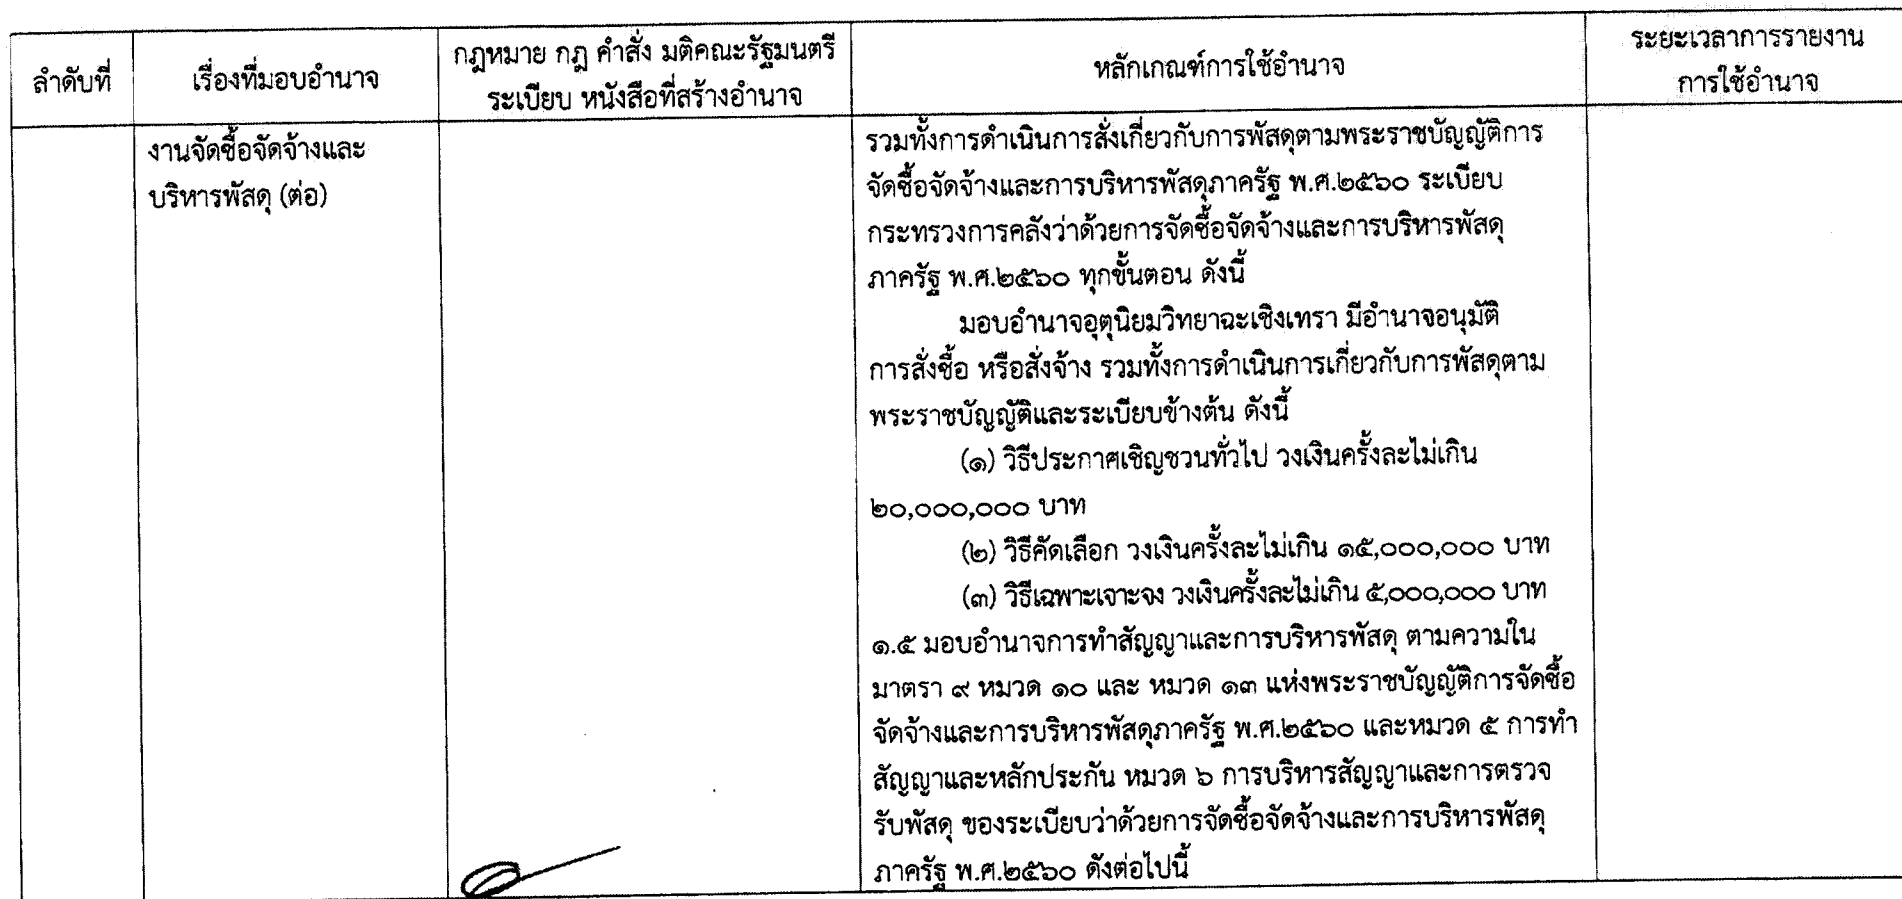 ลำดับที่
เรื่องที่มอบอำนาจ
กฎหมาย กฎ คำสั่ง มติคณะรัฐมนตรี
ระเบียบ หนังสือที่สร้างอำนาจ
หลักเกณฑ์การใช้อำนาจ
ระยะเวลาการรายงาน
การใช้อำนาจ
งานจัดซื้อจัดจ้างและ
บริหารพัสดุ (ต่อ)
รวมทั้งการดำเนินการสั่งเกี่ยวกับการพัสดุตามพระราชบัญญัติการ
จัดซื้อจัดจ้างและการบริหารพัสดุภาครัฐ พ.ศ.๒๕๖๐ ระเบียบ
กระทรวงการคลังว่าด้วยการจัดซื้อจัดจ้างและการบริหารพัสดุ
ภาครัฐ พ.ศ.๒๕๖๐ ทุกขั้นตอน ดังนี้
มอบอำนาจอุตุนิยมวิทยาฉะเชิงเทรา มีอำนาจอนุมัติ
การสั่งซื้อ หรือสั่งจ้าง รวมทั้งการดำเนินการเกี่ยวกับการพัสดุตาม
พระราชบัญญัติและระเบียบข้างต้น ดังนี้
(๑) วิธีประกาศเชิญชวนทั่วไป วงเงินครั้งละไม่เกิน
๒๐,๐๐๐,๐๐๐ บาท
(๒) วิธีคัดเลือก วงเงินครั้งละไม่เกิน ๑๕,๐๐๐,๐๐๐ บาท
(๓) วิธีเฉพาะเจาะจง วงเงินครั้งละไม่เกิน ๕,๐๐๐,๐๐๐ บาท
๑.๕ มอบอำนาจการทำสัญญาและการบริหารพัสดุ ตามความใน
มาตรา ๙ หมวด ๑๐ และ หมวด ๑๓ แห่งพระราชบัญญัติการจัดซื้อ
จัดจ้างและการบริหารพัสดุภาครัฐ พ.ศ.๒๕๖๐ และหมวด ๕ การทำ
สัญญาและหลักประกัน หมวด ๖ การบริหารสัญญาและการตรวจ
รับพัสดุ ของระเบียบว่าด้วยการจัดซื้อจัดจ้างและการบริหารพัสดุ
ภาครัฐ พ.ศ.๒๕๖๐ ดังต่อไปนี้